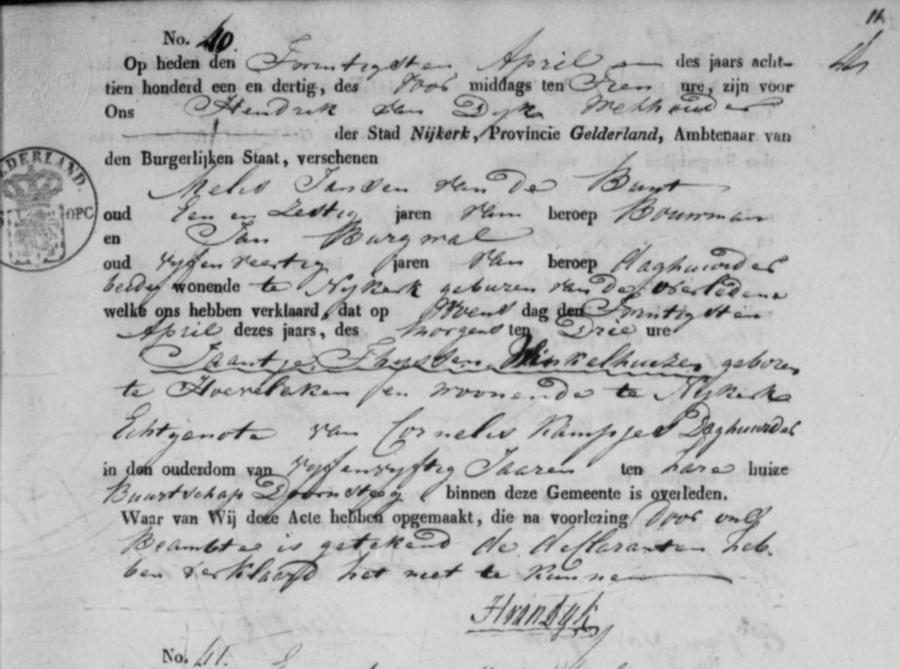 11
No. 40.
Op heden den Twintigsten April des jaars acht-
tien honderd een en dertig, des Voor middags ten Tien ure, zijn voor
Ons Hendrik van Dijk Wethouder
der Stad Nijkerk, Provincie Gelderland, Ambtenaar van
den Burgerlijken Staat, verschenen
NEDERLAND.
OPC
Melis Jansen van de Bunt
oud Een en Zestig jaren van beroep Bouwman
en Jan Burgwal
oud vyf en veertig jaren van beroep Daghuurder
beide wonende te Nykerk geburen van de overledene
welke ons hebben verklaard, dat op Woens dag den Twintigsten
April dezes jaars, des morgens ten Drie ure
Jaantje Thyssen Winkelhuizen geboren
te Hoevelaken en woonende te Nykerk
Echtgenote van Cornelis Kampjes Daghuurder
in den ouderdom van vyfenvyftig Jaaren ten hare huize
Buurtschap Doornsteeg binnen deze Gemeente is overleden.
Waar van Wij deze Acte hebben opgemaakt, die na voorlezing door ons
Beambte is getekend de declaranten heb-
ben verklaard het niet te kunnen
HvanDijk
No. 41.